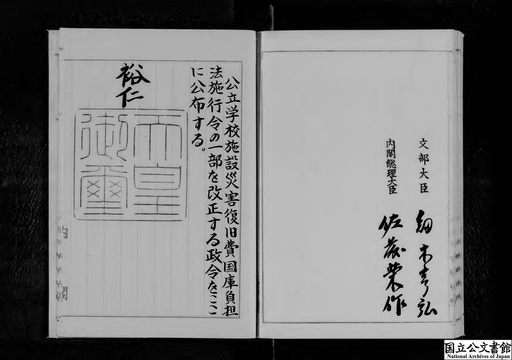 文部大臣 剱木亨弘
内閣総理大臣 佐藤栄作
公立学校施設災害復旧費国庫負担
法施行令の一部を改正する政令をここ
に公布する。
裕仁
天皇
御璽
内閣
国立公文書館
National Archives of Japan